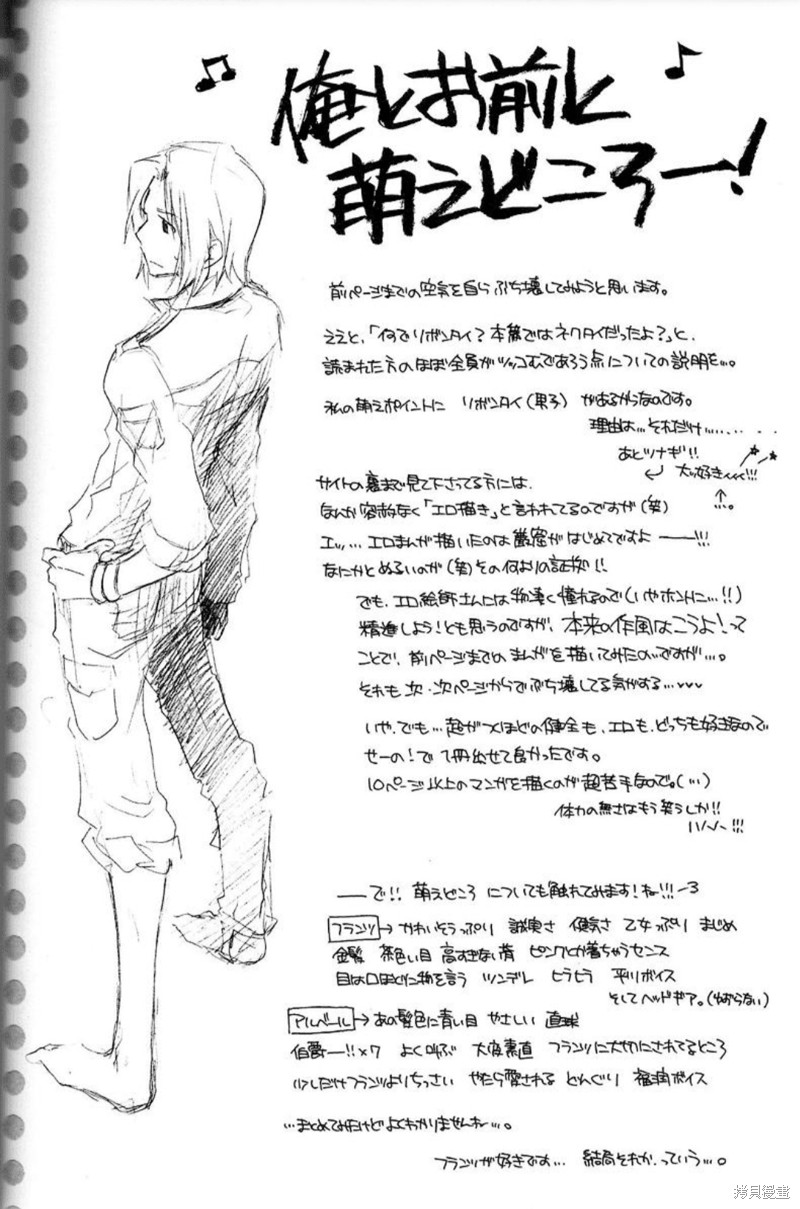 俺とお前と
萌えどころー!
前ページまでの空気を自らぶち壊してみようと思います。
ええと、「何でリボンタイ?本篇ではネクタイだったよ?」と、
読まれた方のほぼ全員がツッコむであろう点についての説明を…。
私の萌えポイントに リボンタイ(男子) があるからなのです。
理由は…それだけ…
あとツナギ!!
大ッ好き
サイトの裏まで見て下さってる方には、
なんか容赦なく「エロ描き」と言われてるのですが(笑)
エッ… エロまんが描いたのは巌窟がはじめてですよ ――!!!
なにかとぬるいのが(笑)その何よりの証拠!!
でも、エロ絵師さんには物凄く憧れるので(いやホントに…!!)
精進しよう!とも思うのですが、本来の作風はこうよ!って
ことで、前ページまでのまんがを描いてみたのですが…。
それも次・次ページからでぶち壊してる気がする…
いや、でも…超がつくほどの健全も、エロも、どっちも好きなので
せーの!で1冊出せて良かったです。
10ページ以上のマンガを描くのが超苦手なので。(…)
体力の無さはもう笑うしか!!
ハハハー!!!
――で!! 萌えどころ についても触れてみます!ねー!!!
フランツ→かわいそうっぷり 誠実さ 健気さ 乙女っぷり まじめ
金髪 茶色い目 高すぎない背 ピンクとか着ちゃうセンス
目は口ほどに物を言う ツンデレ ヒラヒラ 平川ボイス
そしてヘッドギア。(わからない)
アルベール→あの髪色に青い目 やさしい 直球
伯爵―!!×7 よく叫ぶ 大変素直 フランツに大切にされてるところ
少しだけフランツよりちっさい やたら愛される どんぐり 福山ボイス
…まとめてみたけどよくわかりませんねー…。
フランツが好きです… 結局それか、っていう…。
拷貝漫畫